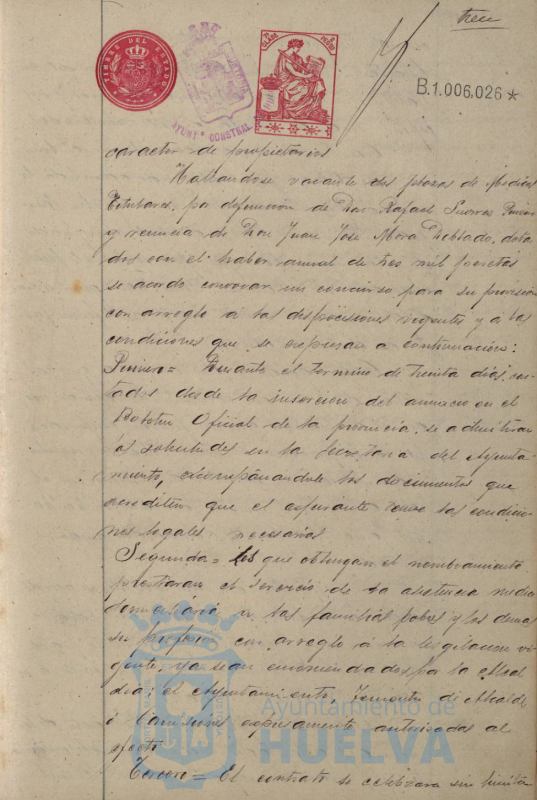 trece
TIMBRE DEL ESTADO
AYUNTº CONSTNAL
B.1.006,026*
caracter de propietarios
Hallandose vacante dos plazas de Medicos
Titulares, por defuncion de Don Rafael Suarez
y renuncia de Don Juan José Mora Doblado, dota
das con el haber anual de tres mil pesetas
se acordó convocar un concurso para su provision
con arreglo á las disposiciones vigentes y á las
condiciones que se expresan a continuación:
Primera= Durante el termino de treinta dias, con
tados desde la insercion del anuncio en el
Boletin Oficial de la provincia, se admitiran
las solicitudes en la Secretaria del Ayunta
miento, acompañandole los documentos que
acrediten que el aspirante reune las condicio
nes legales necesarias
Segunda= Los que obtengan el nombramiento
prestaran el servicio de la asistencia medica
domiciliaria a las familias pobres y los demas
de su profesion con arreglo á la legislacion vi
gente, ya sean encomendados por la Alcal
dia, el Ayuntamiento, Teniente de Alcalde
ó Comisiones expresamente autorizadas al
efecto
Tercera= El contrato se celebrará sin limita
Ayuntamiento de
HUELVA